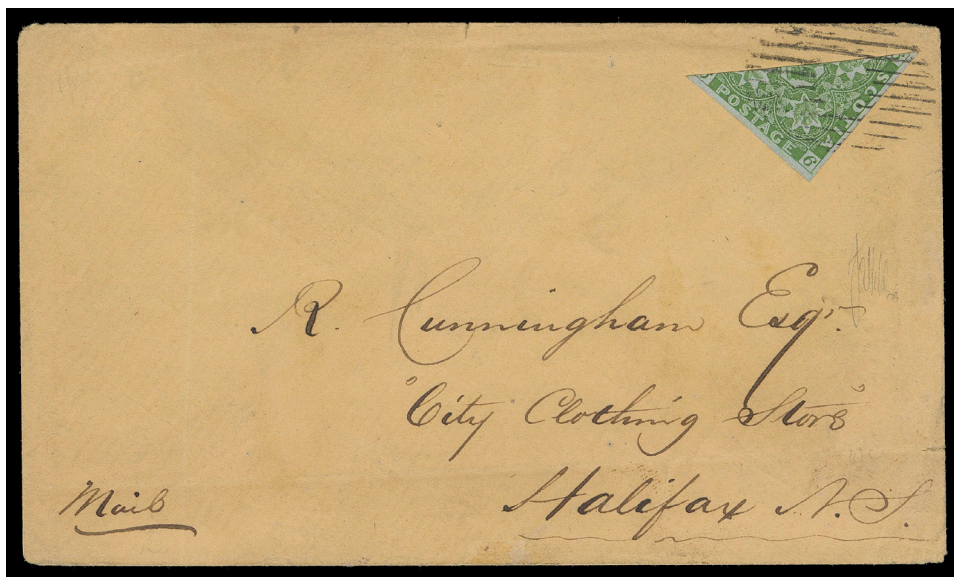 POSTAGE 6
SCOTIA
R. Cunningham Esqr.
"City Clothing Store"
Halifax N. S.
Mail